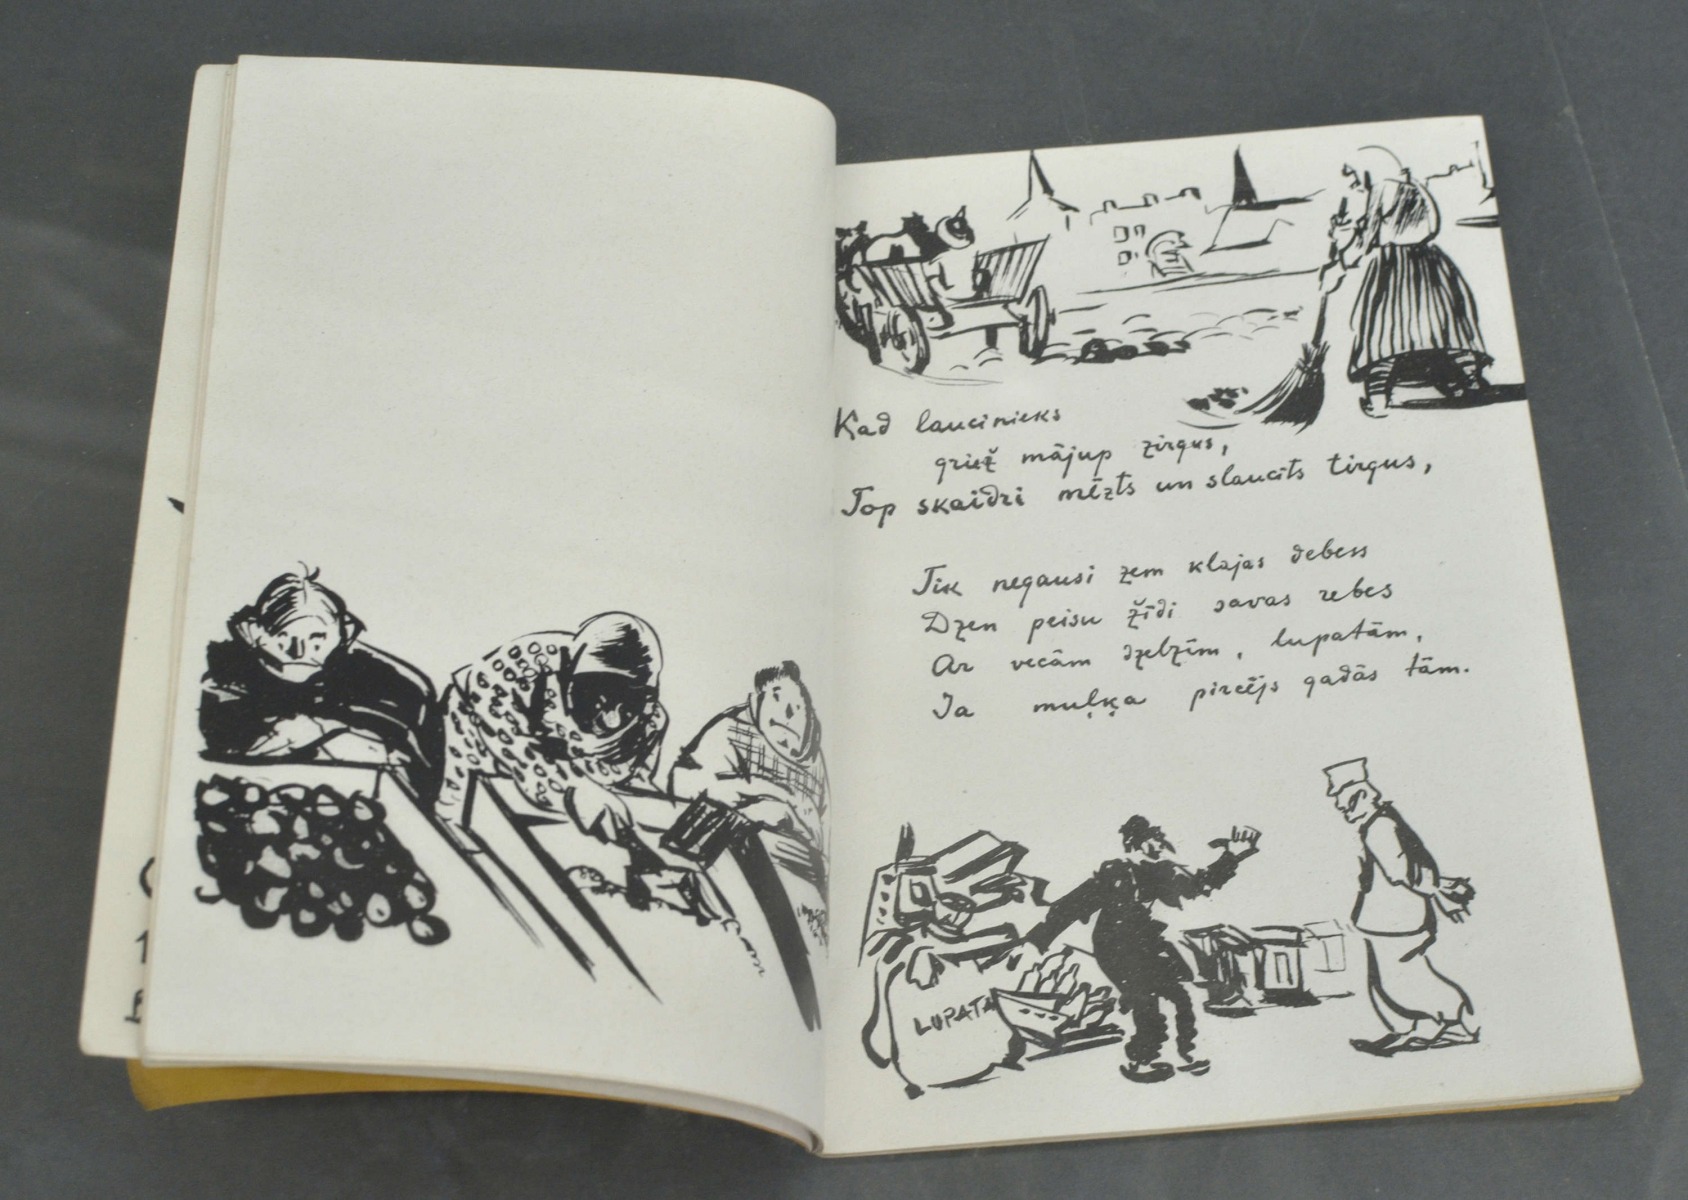 Kad laucinieks
griež mājup zirgus,
Top skaidri mēzts un slaucīts tirgus,
Tik negausi zem klajas debess
Dzen peisu žīdi savas rebes
Ar vecām dzelzīm, lupatām,
Ja muļķa pircējs gadās tām.
LUPATA